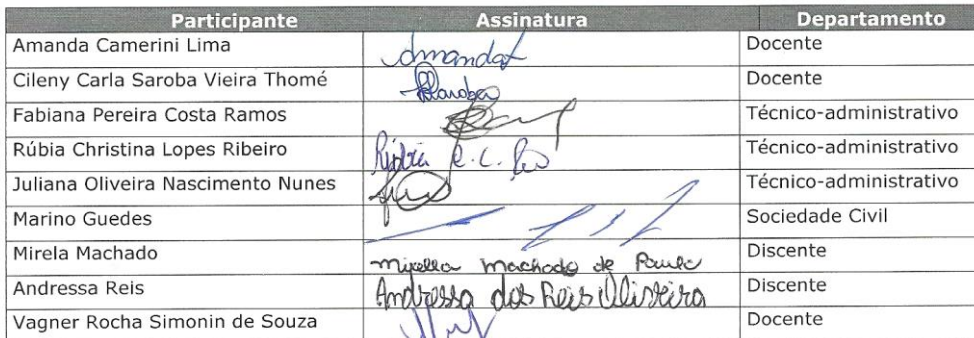 Participante Assinatura Departamento
Amanda Camerini Lima Amanda Docente
Cileny Carla Saroba Vieira Thomé Saroba Docente
Fabiana Pereira Costa Ramos Técnico-administrativo
Rúbia Christina Lopes Ribeiro Rúbia C. L. Técnico-administrativo
Juliana Oliveira Nascimento Nunes Técnico-administrativo
Marino Guedes Sociedade Civil
Mirela Machado Mirella Machado de Paula Discente
Andressa Reis Andressa dos Reis Oliveira Discente
Vagner Rocha Simonin de Souza Docente